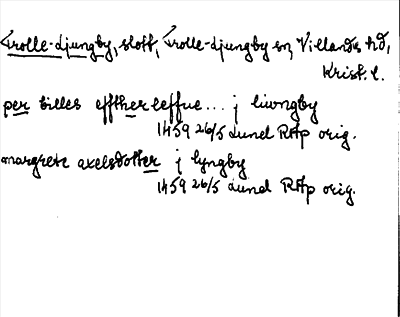 Trolle-Ljungby, slott, Trolle-Ljungby sn, Villands hd,
Krist. l.
per billes effther leffue... j liwngby
1459 26/5 Lund RAp orig.
margrete axelsdotter j lyngby
1459 26/5 Lund RAp orig.